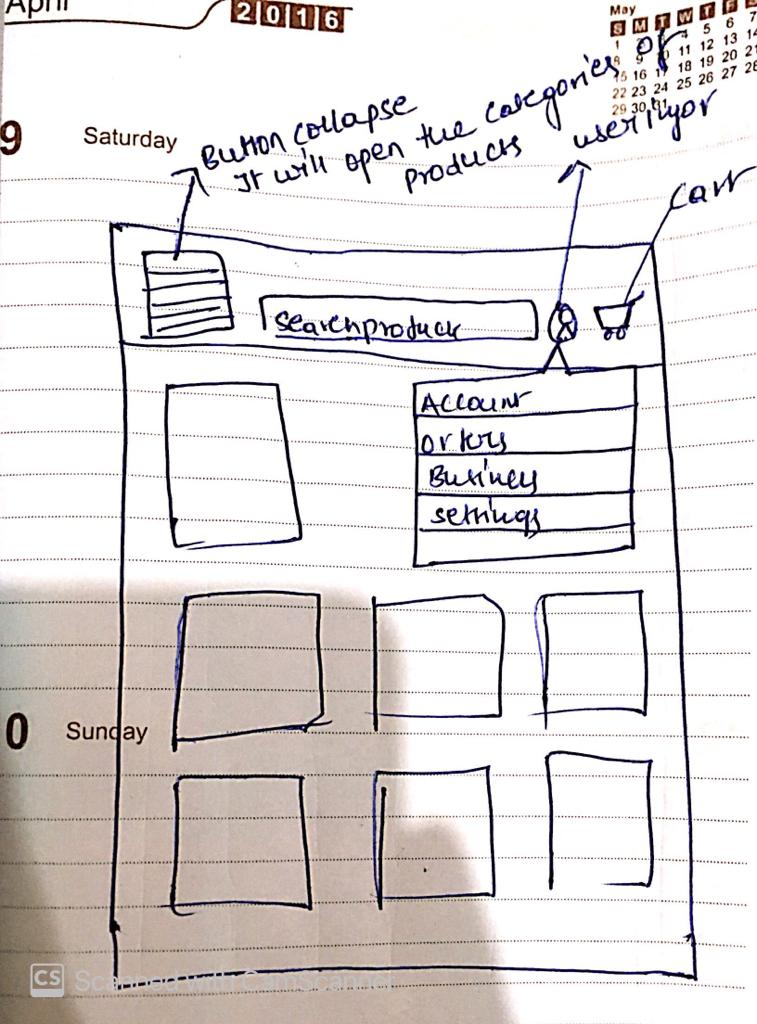 April
2016
May
S M T W T F
1 4 5 6 7
8 9 11 12 13 14
15 16 17 18 19 20 21
22 23 24 25 26 27 28
29 30 31
9 Saturday
Button collapse
It will open the categories of
products
Cart
searchproduct
Account
orders
Business
settings
0 Sunday
CS Scanned with CamScanner